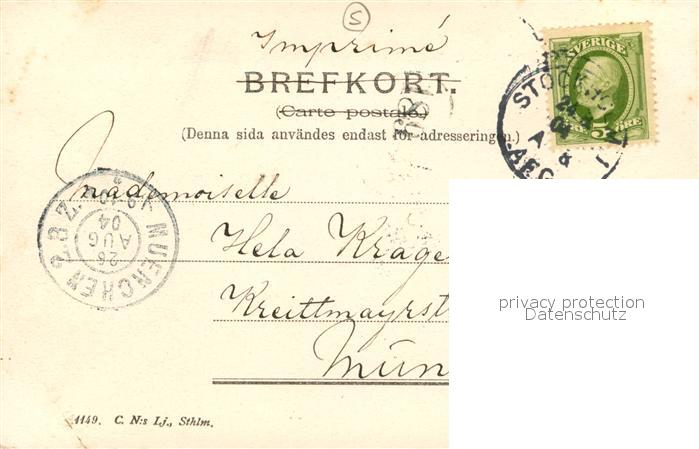 S
Imprimé
BREFKORT.
(Carte postale.)
(Denna sida användes endast för adresseringen.)
SVERIGE
5 ÖRE
STOCK
24
04
Mademoiselle
Hela Krage
Kreittmayrst
Mün
MUENCHEN 2 B.Z.
26
AUG
04
1149. C. N:s Lj., Sthlm.
privacy protection
Datenschutz